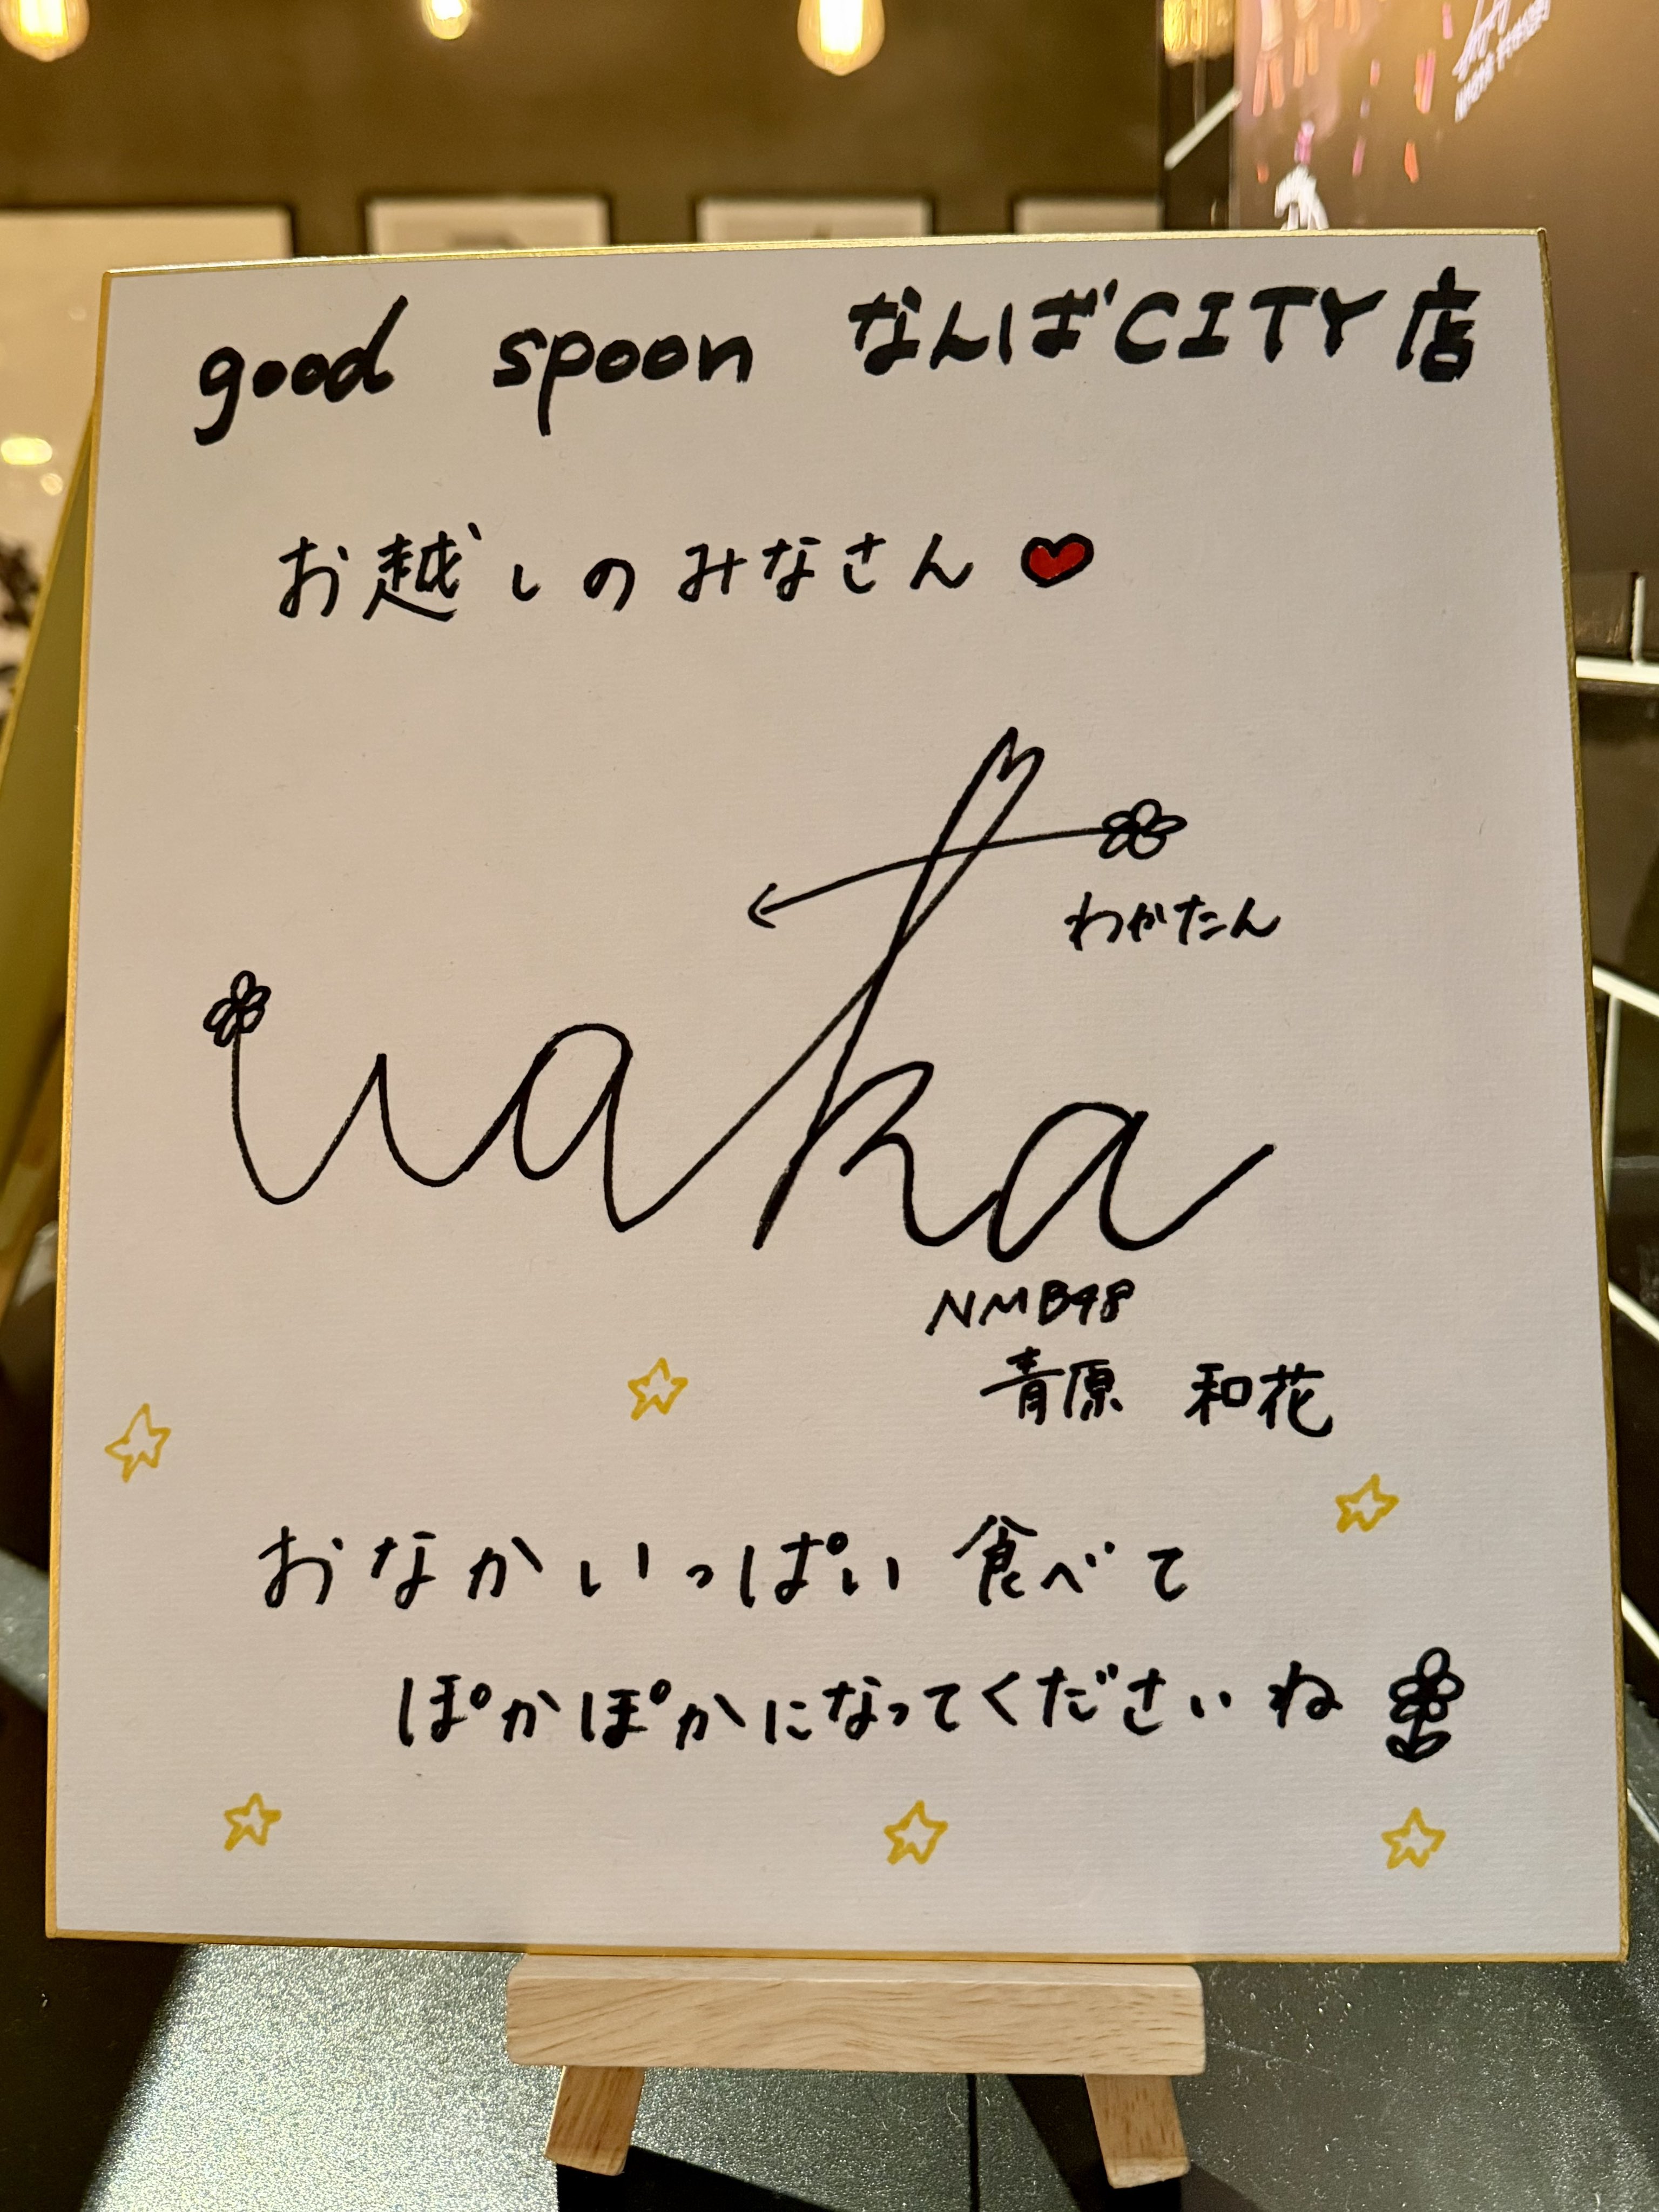 good spoon なんばCITY店
お越しのみなさん
わかたん
waka
NMB48
青原 和花
おなかいっぱい食べて
ぽかぽかになってくださいね